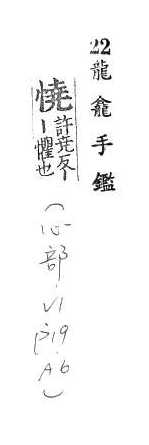 22 龍龕手鑑
憢
許堯反
ー懼也
(心部、V1
P19
A6)